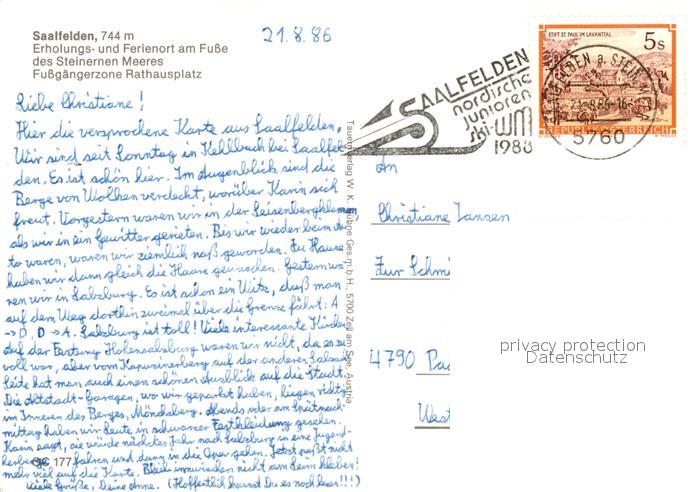 Saalfelden, 744 m
Erholungs- und Ferienort am Fuße
des Steinernen Meeres
Fußgängerzone Rathausplatz
21.8.86
Liebe Christiane!
Hier die versprochene Karte aus Saalfelden.
Wir sind seit Sonntag in bei Saalfel-
den. Es ist schön hier. Im Augenblick sind die
Berge von Wolken verdeckt, worüber Karin sich
freut. Vorgestern waren wir in der Seisenbergklamm,
als wir in ein Gewitter gerieten. Bis wir wieder beim Au-
to waren, waren wir ziemlich naß geworden. Zu Hause
haben wir dann gleich die Haare gewaschen. Gestern wa-
ren wir in Salzburg. Es ist schon ein Witz, daß man
auf dem Weg dorthin zweimal über die Grenze fährt: A
→ D, D → A. Salzburg ist toll! Viele interessante Kirchen
Auf der Festung Hohensalzburg waren wir nicht, da es zu
voll war, aber vom Kapuzinerberg auf der anderen Salzach-
seite hat man auch einen schönen Ausblick auf die Stadt.
Die Altstadt-Garagen, wo wir geparkt haben, liegen richtig
im Inneren des Berges, Mönchsberg. Abends oder am Spätnach-
mittag haben wir Leute in schwarzer Festkleidung gesehen.
Karin sagt, sie würde nächstes Jahr nach Salzburg in eine Jugend-
herberge fahren und dann in die Oper gehen. Jetzt paßt nicht
mehr viel auf die Karte. Bleib inzwischen nicht am Leim kleben!
Viele Grüße, Deine Anne. (Hoffentlich kannst Du es noch lesen!!!)
177
Tauernverlag W. K. Ges.m.b.H. 5700 Zell am See, Austria
SAALFELDEN
nordische
junioren
ski-WM
1988
STIFT ST. PAUL IM LAVANTTAL
5 S
REPUBLIK ÖSTERREICH
21.-8.86-16
5760
An
Christiane Jansen
Zur
4790
privacy protection
Datenschutz